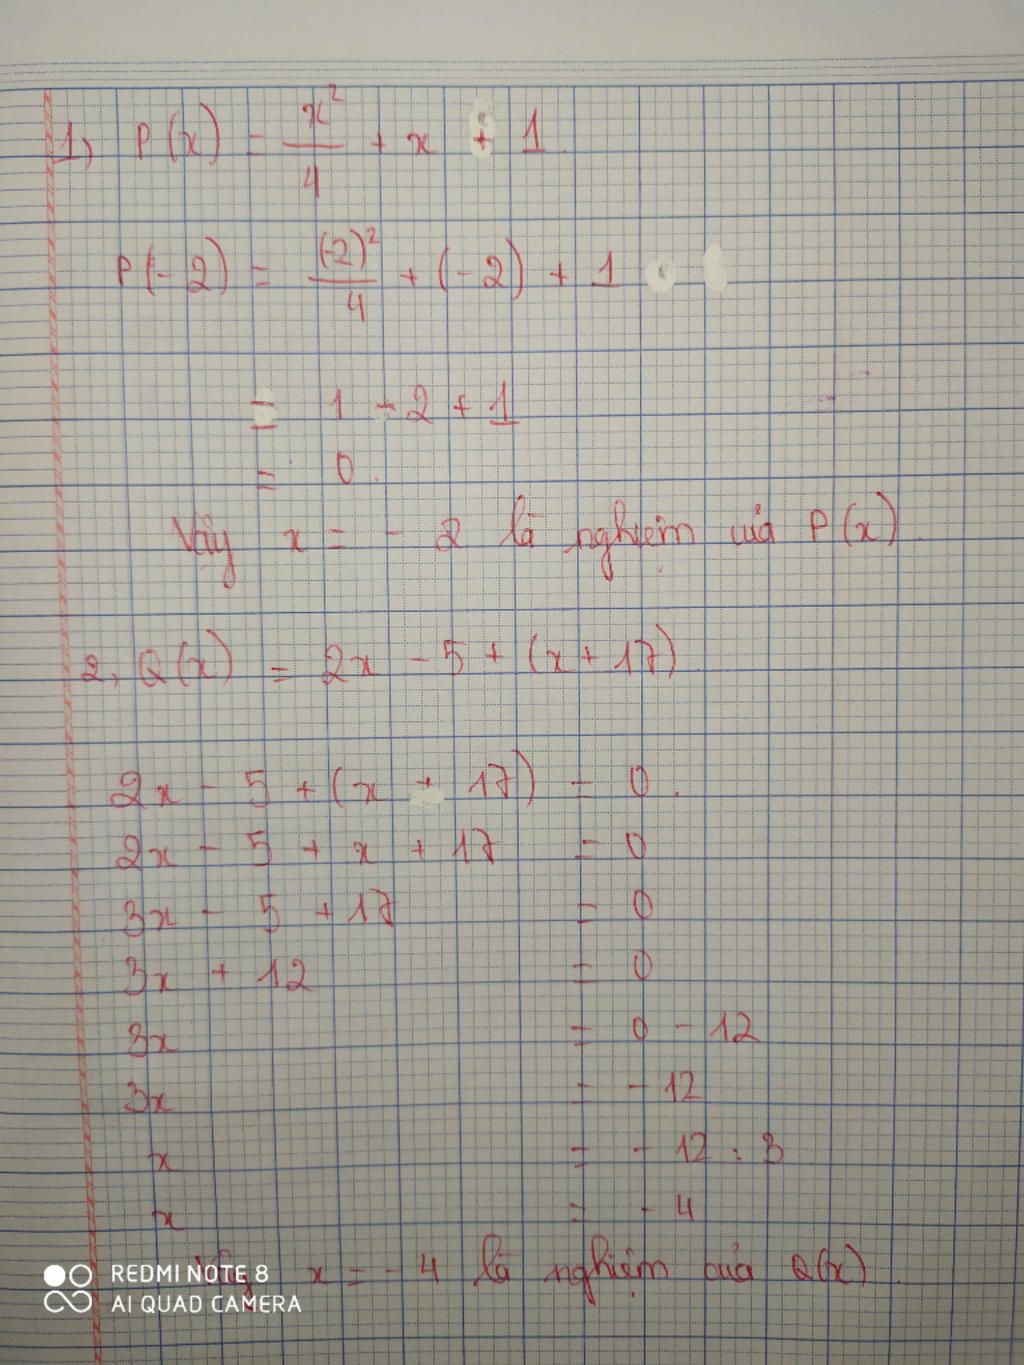 1) P(x) = x²/4 + x + 1.
P(-2) = (-2)²/4 + (-2) + 1
= 1 - 2 + 1
= 0.
Vậy x = - 2 là nghiệm của P(x).
2, Q(x) = 2x - 5 + (x + 17).
2x - 5 + (x + 17) = 0.
2x - 5 + x + 17 = 0
3x - 5 + 17 = 0
3x + 12 = 0
3x = 0 - 12
3x = - 12
x = - 12 : 3
x = - 4
Vậy x = - 4 là nghiệm của Q(x).
REDMI NOTE 8
AI QUAD CAMERA